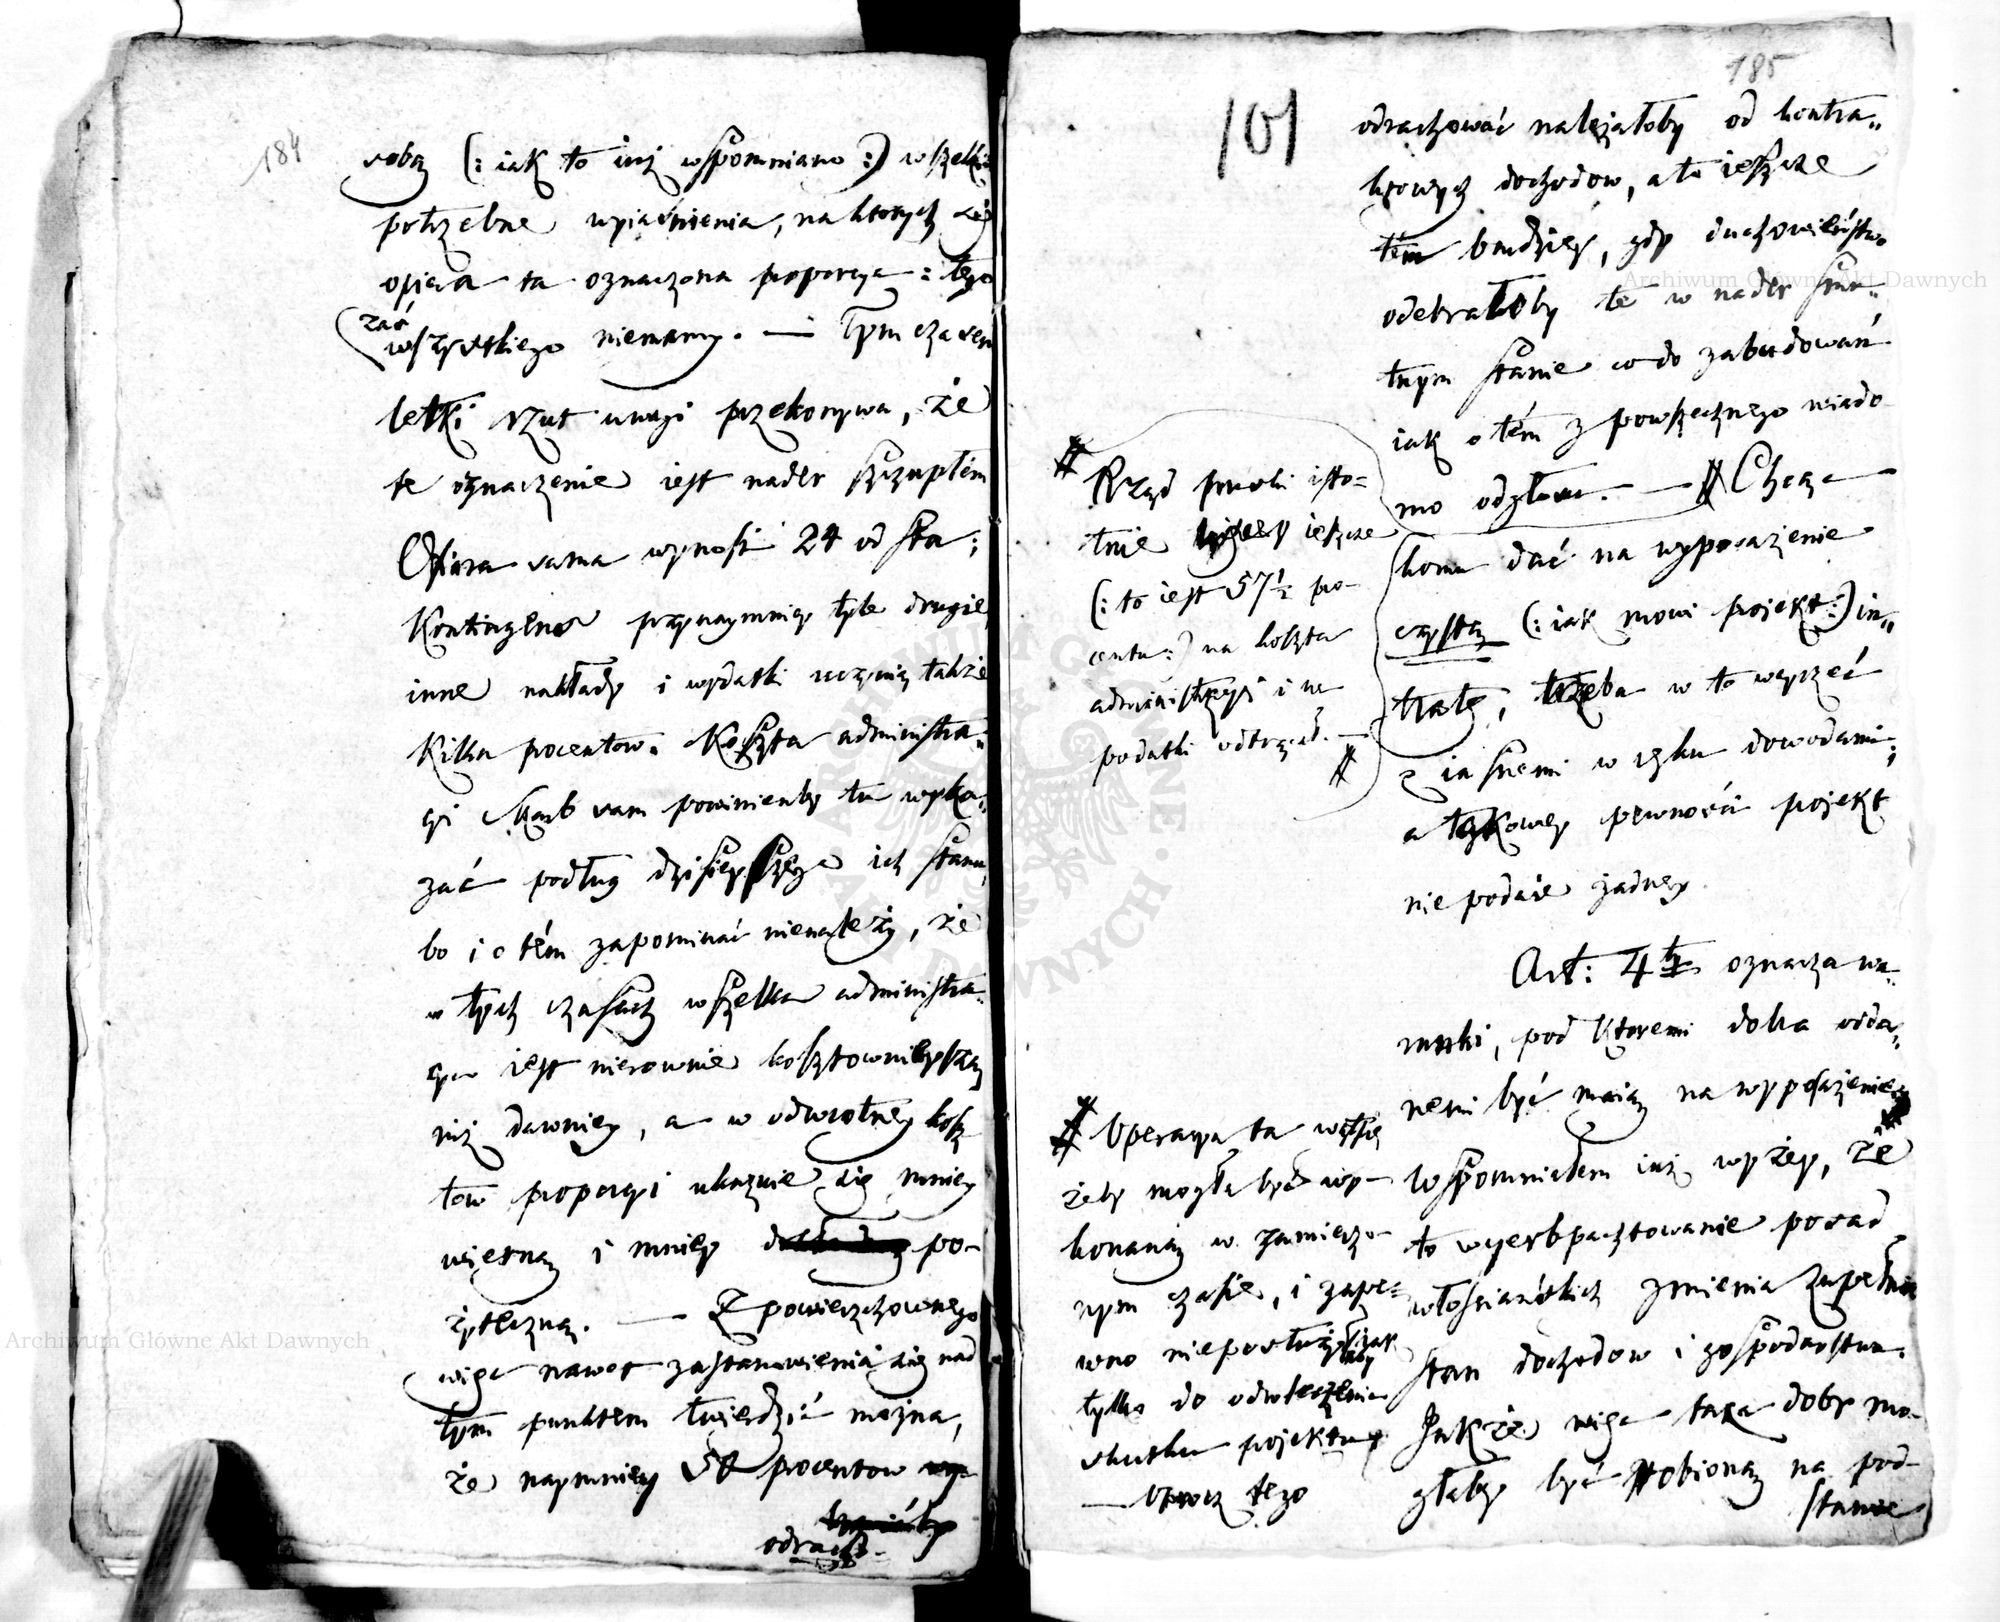 184
sobą (: iak to iuż wspomniano :) wszelkie
potrzebne wyiaśnienia, na ktorych się
opiera ta oznaczona proporcya: tego
zaś
wszystkiego niemamy. — Tym czasem
letki rzut uwagi przekonywa, że
te oznaczenie iest nader szczupłém
Ofiara sama wynosi 24 od sta;
Kontingens przynaymniey tyle drugie
inne nakłady i wydatki uczynią także
kilka procentow. Koszta administra„
cyi Skarb sam powinienby tu wyka„
zać podług dzisieyszego ich stanu,
bo i o tém zapominać nienależy, że
w tych czasach wszelka administra„
cya iest nierownie kosztownieyszą
niż dawniey, a w odwrotney kosz
tow proporcyi ukazuie się mniey
wierną i mniey po-
żyteczną. — Z powierzchownego
więc nawet zastanowienia się nad
tym punktem twierdzić można,
że naymniey 50 procentow
odrach-
185
101
odrachować należałoby od kontra„
ktowych dochodow, a to ieszcze
tém bardziey, gdy duchowieństwo
odebrałoby te w nader smu„
tnym stanie co do zabudowań
iak o tém z powszechnego wiado
mo odgłosu. — # Chcąc
komu dać na wyposażenie
czystą (: iak mowi projekt :) in„
tratę, trzeba w to weyrzeć
z iasnemi w ręku dowodami;
a takowey pewności projekt
nie podaie żadney.
# Rząd pruski isto=
tnie więcey ieszcze
(: to iest 57½ pro-
centu :) na koszta
administracyi i na
podatki odtrącał. —
#
Art: 4ty oznacza wa„
runki, pod ktoremi dobra odda„
nemi być maią na wyposażenie
Wspomniałem iuż wyżey, że
to wyerbpachtowanie posad
włościańskich zmienia zupełnie
stan dochodow i gospodarstwa.
Jakże więc taxa dobr mo-
głaby być zrobioną na pod-
stawie
# Operacya ta wątpię
żeby mogła być wy-
konaną w zamierzo-
nym czasie, i zape=
wno nieposłużyłaby iak
tylko do odwleczenia
skutku projektu
— Oprocz tego
Archiwum Główne Akt Dawnych
Archiwum Główne Akt Dawnych
ARCHIWUM GŁÓWNE · AKT DAWNYCH ·